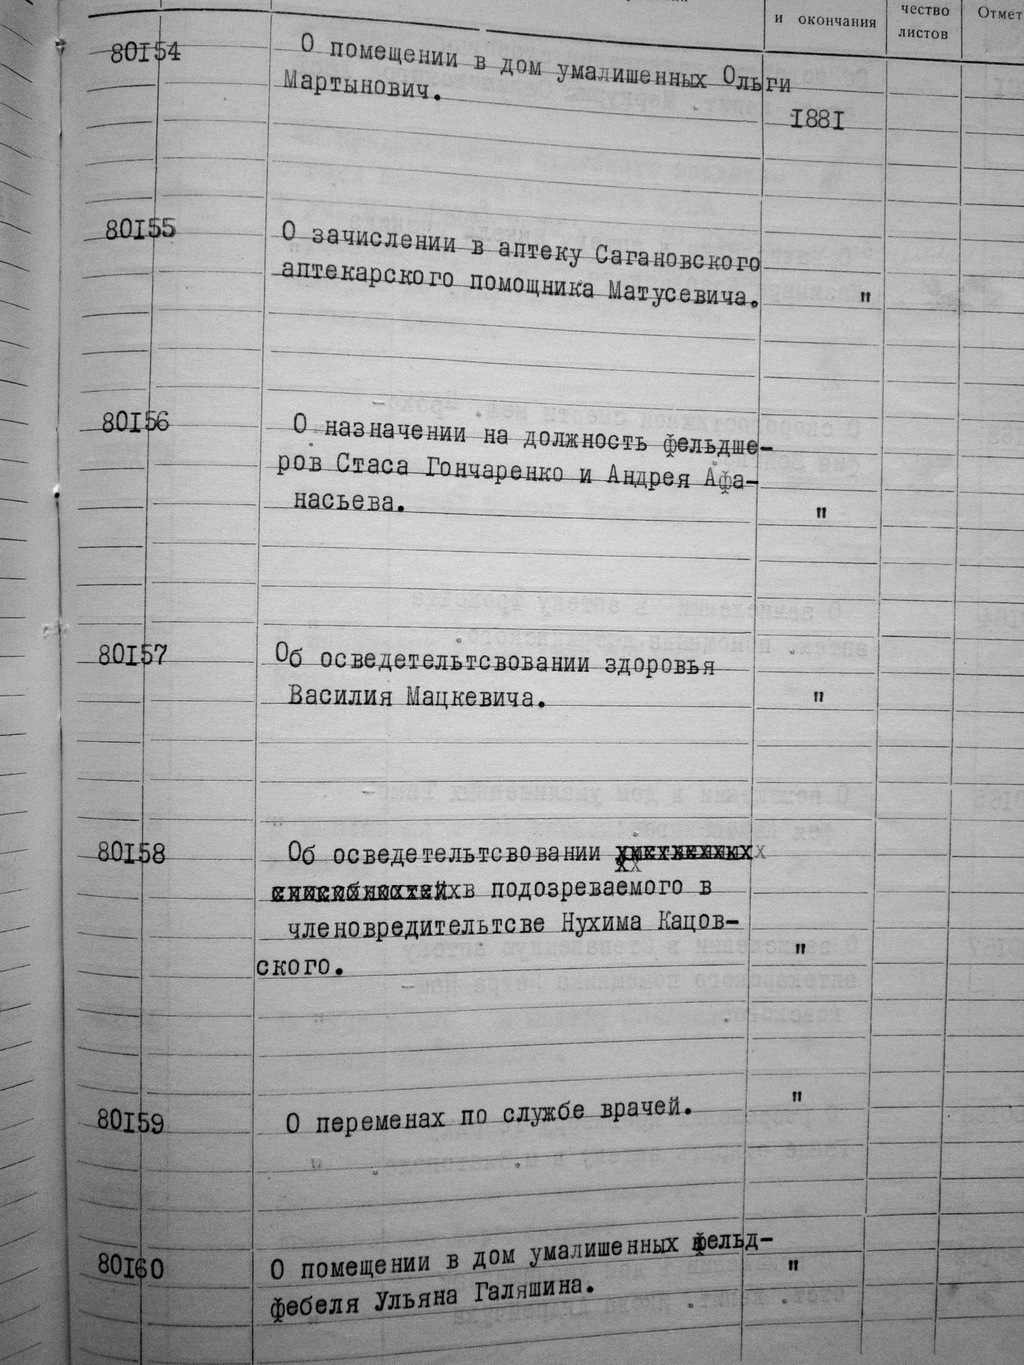 и окончания
чество
листов
Отмет
80154
О помещении в дом умалишенных Ольги
Мартынович.
1881
80155
О зачислении в аптеку Сагановского
аптекарского помощника Матусевича.
"
80156
О назначении на должность фельдше-
ров Стаса Гончаренко и Андрея Афа-
насьева.
"
80157
Об осведетельтсвовании здоровья
Василия Мацкевича.
"
80158
Об осведетельтсвовании
в подозреваемого в
членовредительтсве Нухима Кацов-
ского.
"
80159
О переменах по службе врачей.
"
80160
О помещении в дом умалишенных фельд-
фебеля Ульяна Галяшина.
"